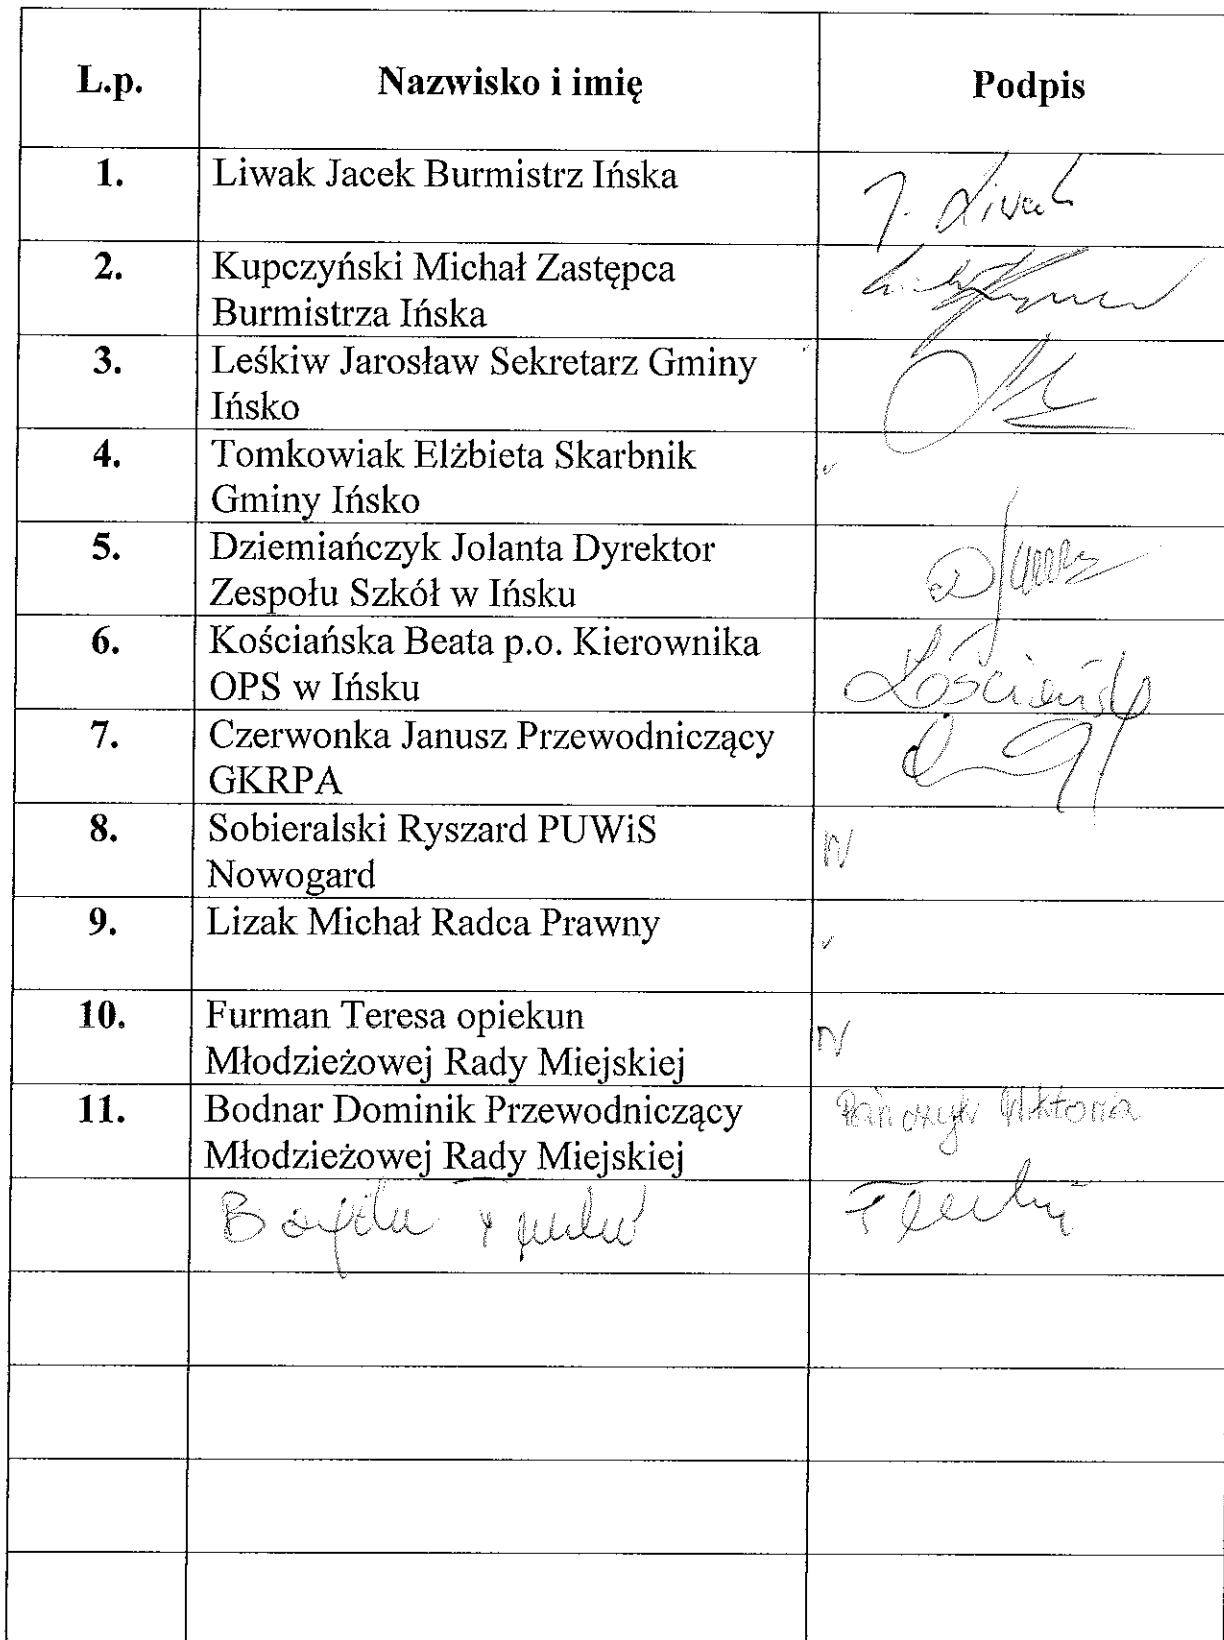 L.p. Nazwisko i imię Podpis
1. Liwak Jacek Burmistrz Ińska J. Liwak
2. Kupczyński Michał Zastępca
Burmistrza Ińska
3. Leśkiw Jarosław Sekretarz Gminy
Ińsko
4. Tomkowiak Elżbieta Skarbnik
Gminy Ińsko
5. Dziemiańczyk Jolanta Dyrektor
Zespołu Szkół w Ińsku
6. Kościańska Beata p.o. Kierownika
OPS w Ińsku
7. Czerwonka Janusz Przewodniczący
GKRPA
8. Sobieralski Ryszard PUWiS N
Nowogard
9. Lizak Michał Radca Prawny
10. Furman Teresa opiekun N
Młodzieżowej Rady Miejskiej
11. Bodnar Dominik Przewodniczący Wiktoria
Młodzieżowej Rady Miejskiej